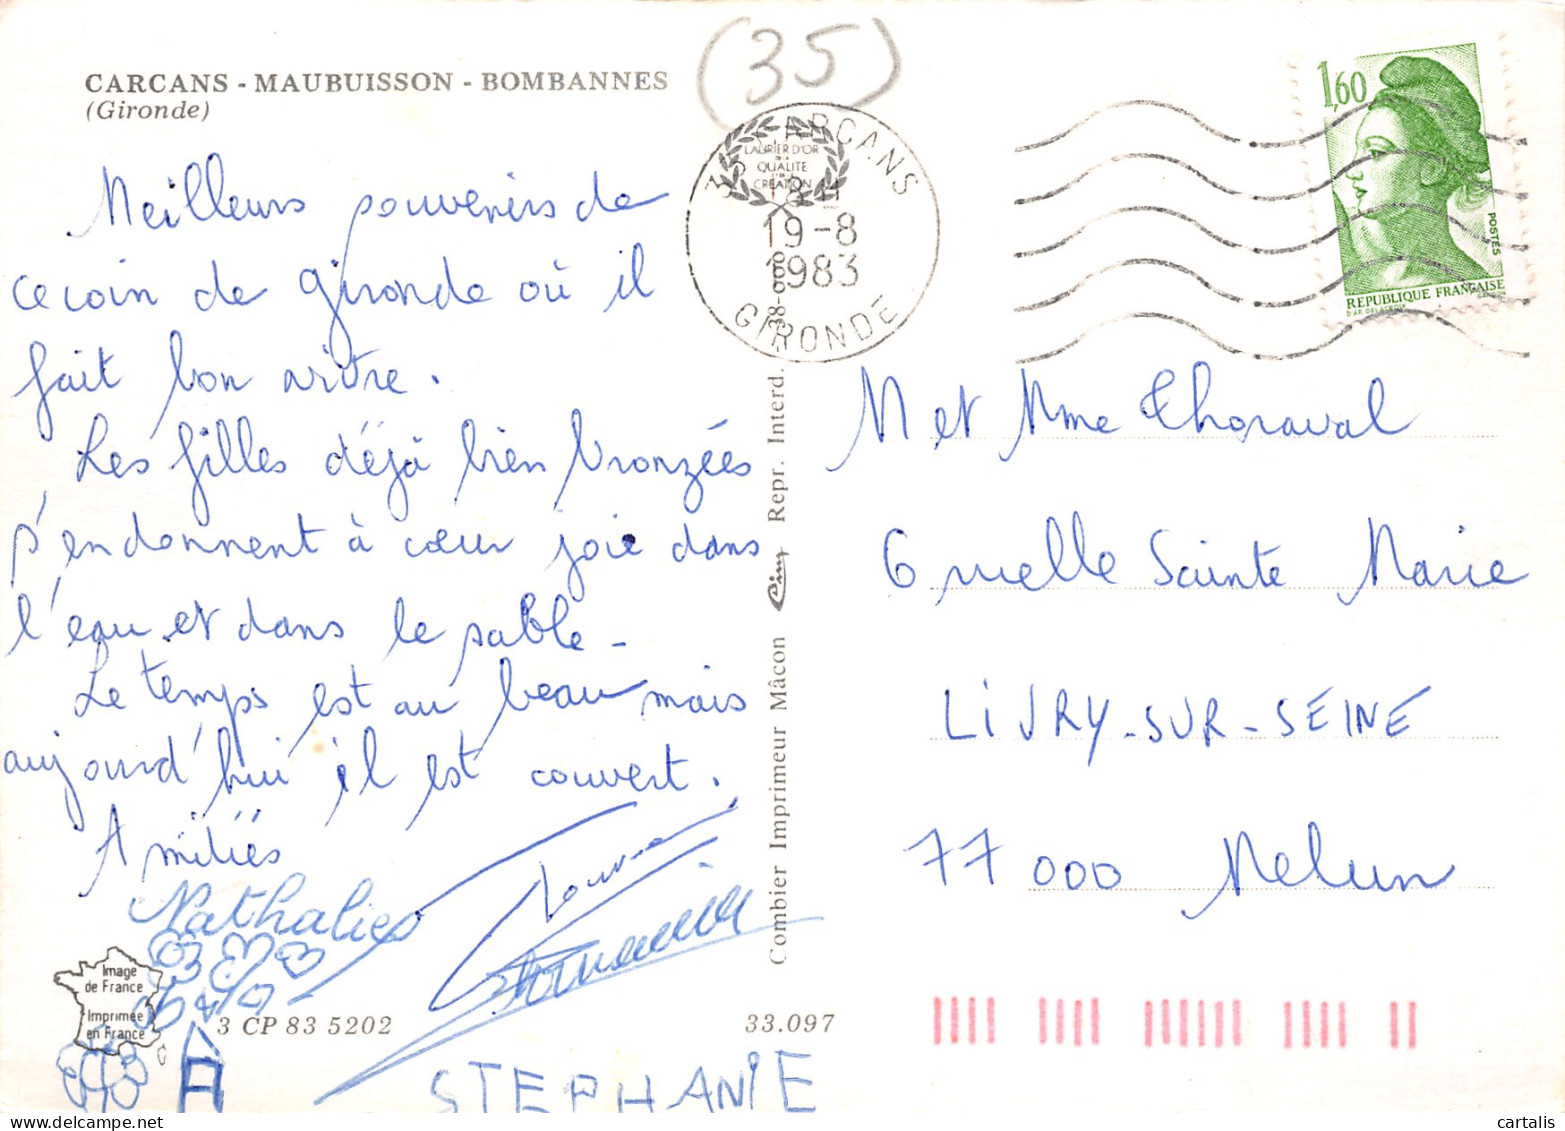 CARCANS - MAUBUISSON - BOMBANNES
(Gironde)
(35)
Meilleurs souvenirs de
ce coin de Gironde où il
fait bon vivre.
Les filles déjà bien bronzées
s'en donnent à cœur joie dans
l'eau et dans le sable -
Le temps est au beau mais
aujourd'hui il est couvert.
Amitiés
Nathalie
STEPHANIE
Image
de France
Imprimée
en France
3 CP 83 5202
33.097
Combier Imprimeur Mâcon Cim Repr. Interd.
LAURIER D'OR
DE LA
QUALITE
CREATION
35 CARCANS
18 H
19-8
1983
GIRONDE
1,60
POSTES
REPUBLIQUE FRANÇAISE
D'AP. DELACROIX
M et Mme Thoraval
6 ruelle Sainte Marie
LIVRY-SUR-SEINE
77000 Melun
cartalis